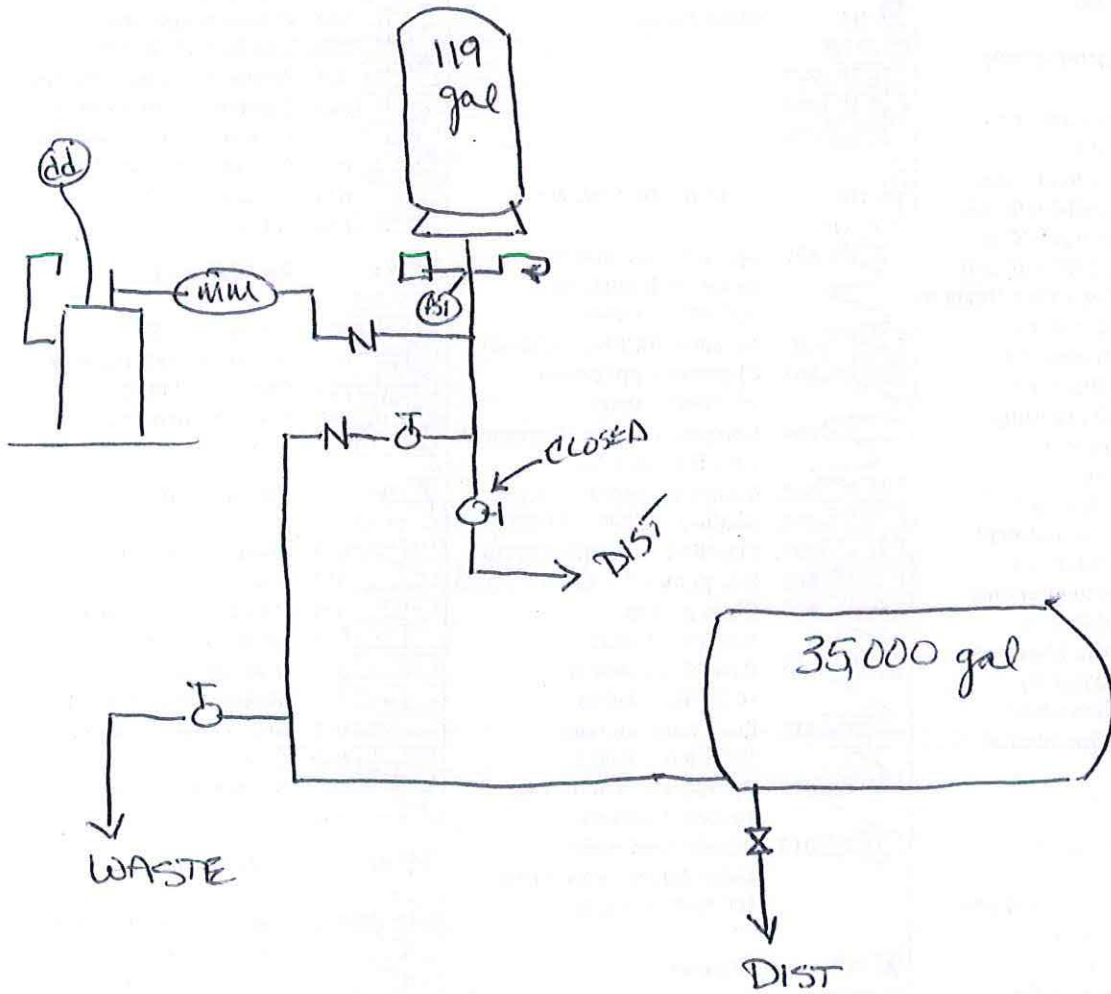 119
gal
dd
mm
PSI
CLOSED
DIST
35,000 gal
WASTE
DIST